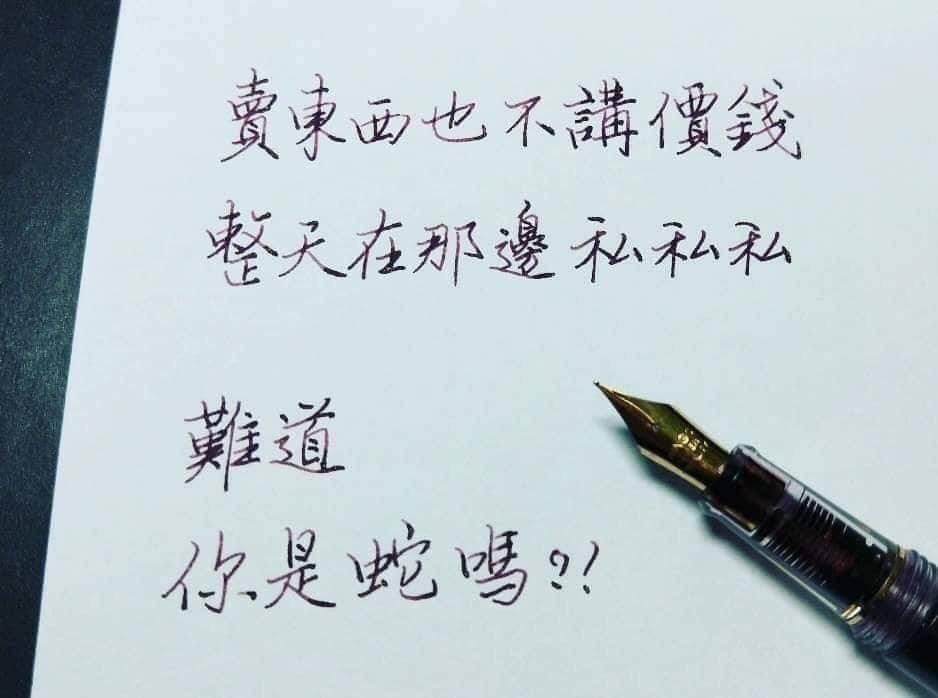 賣東西也不講價錢
整天在那邊私私私
難道
你是蛇嗎?!